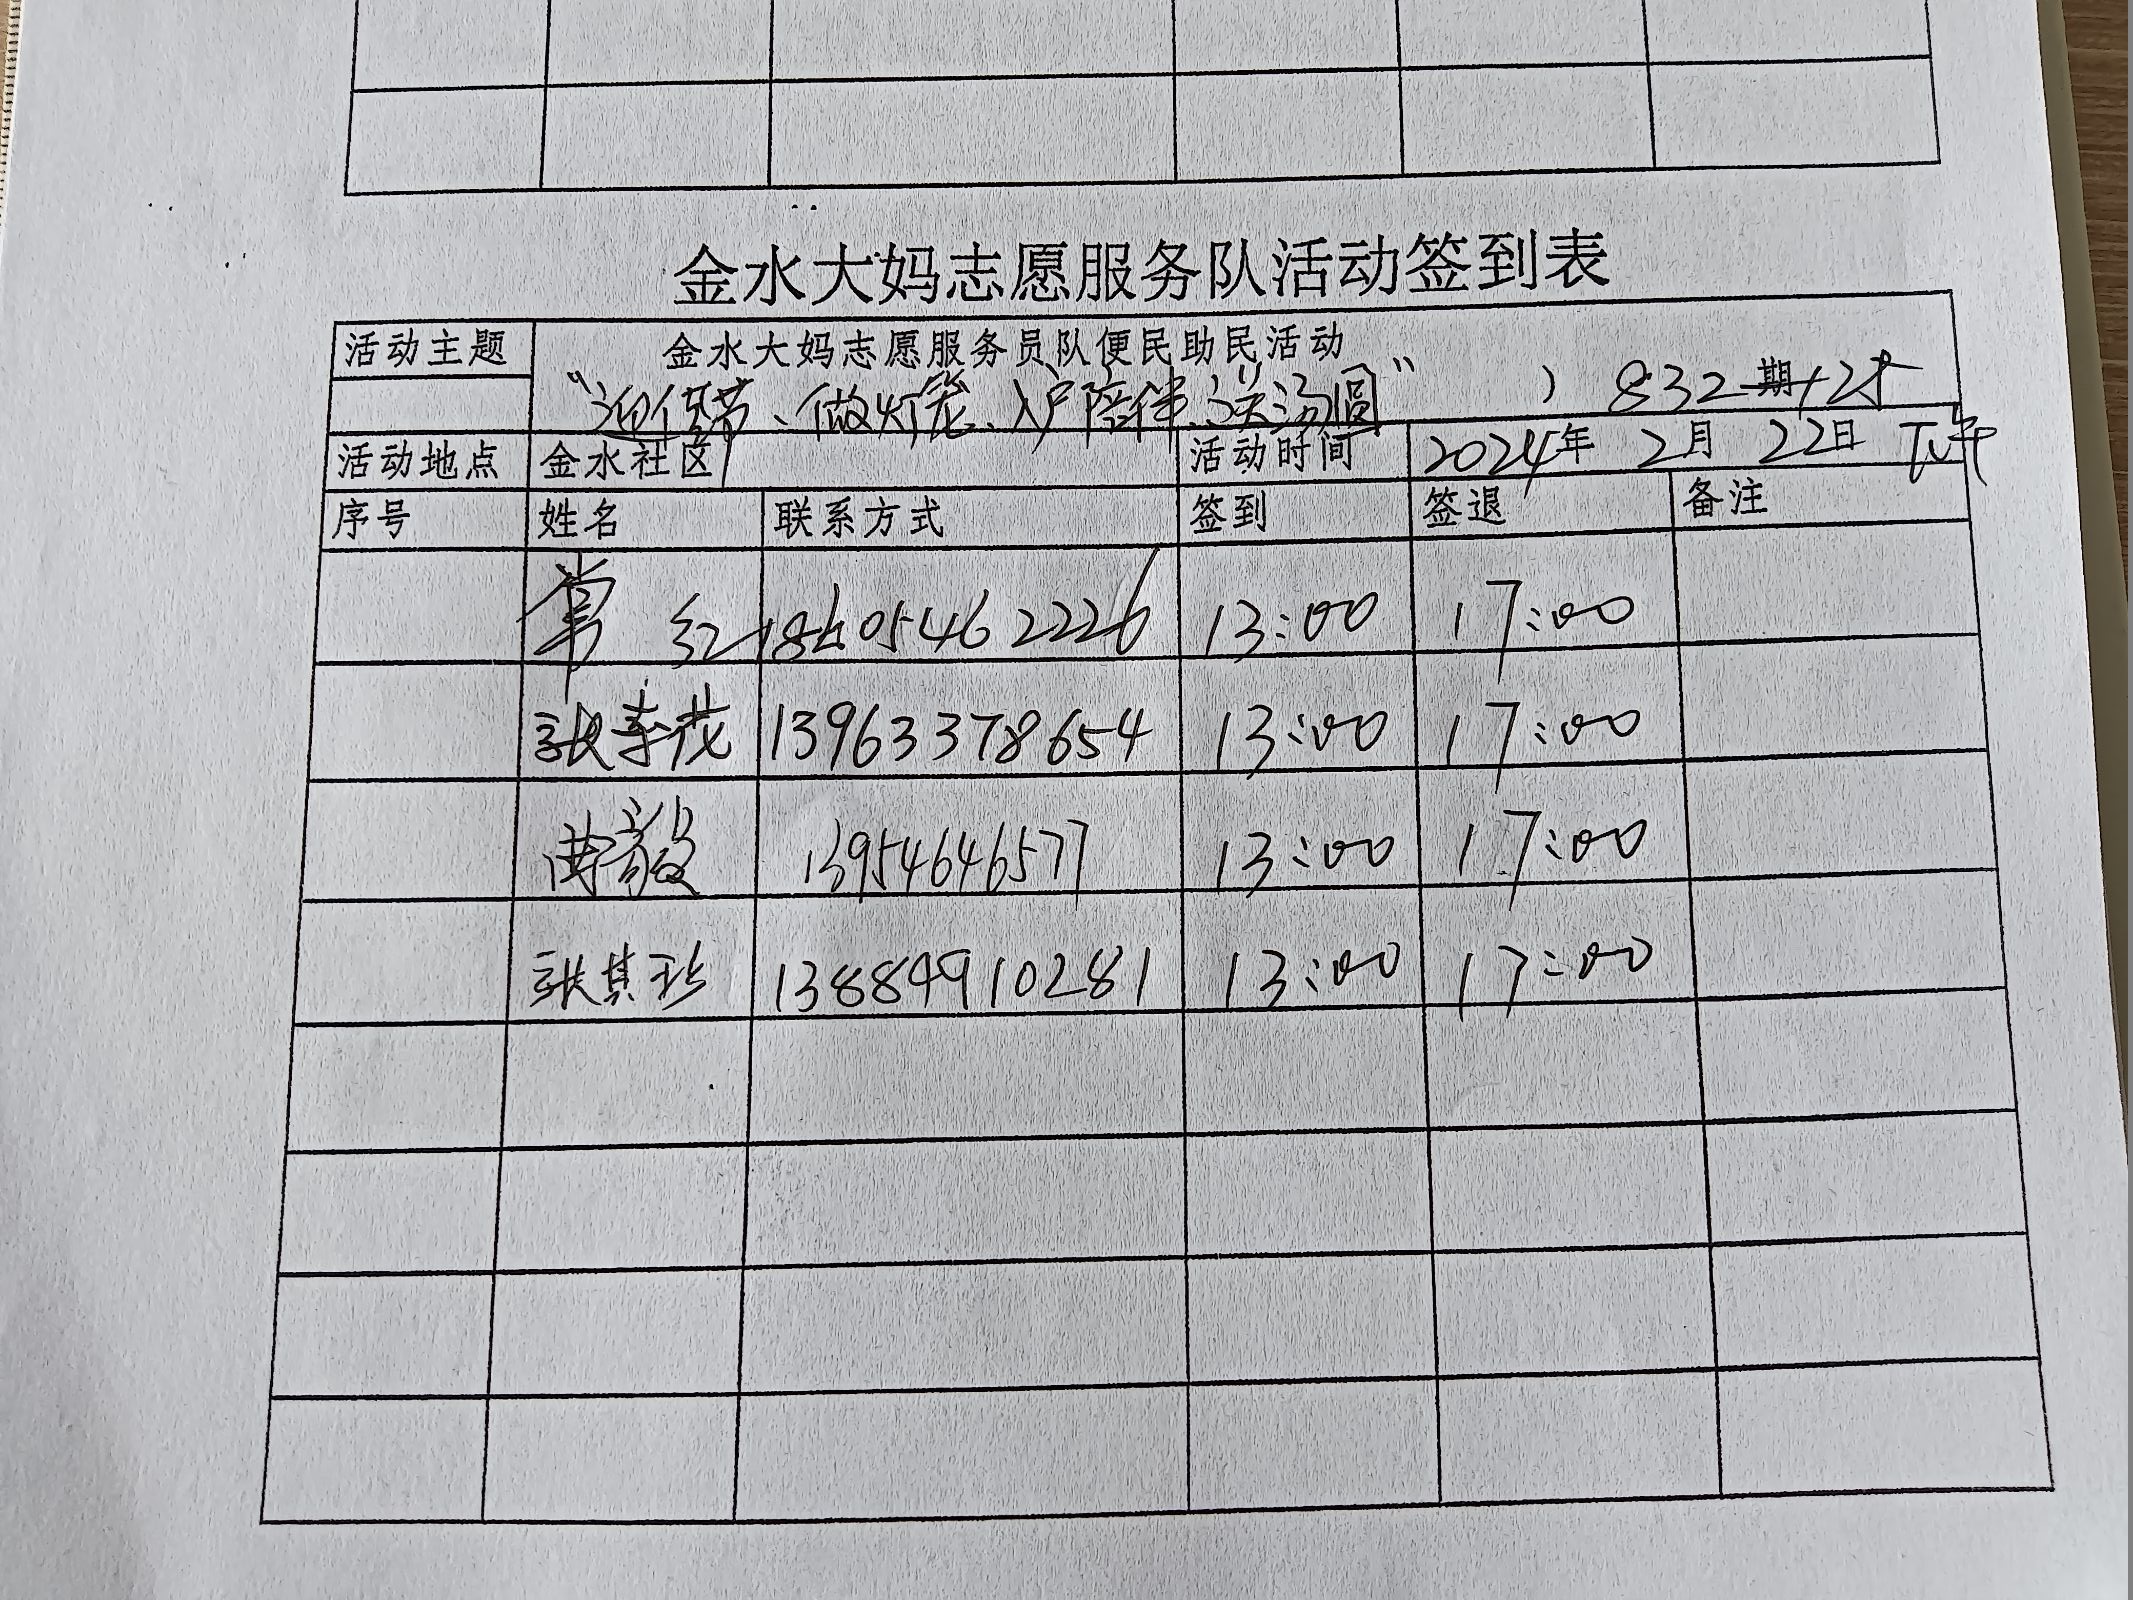 金水大妈志愿服务队活动签到表
活动主题 金水大妈志愿服务员队便民助民活动
“迎佳节、做灯笼、入户陪伴、送汤圆” ) 832期
活动地点 金水社区 活动时间 2024年 2月 22日 下午
序号 姓名 联系方式 签到 签退 备注
常 红 2226 13:00 17:00
张 茂 13963378654 13:00 17:00
曲毅 13954646577 13:00 17:00
张其珍 13884910281 13:00 17:00